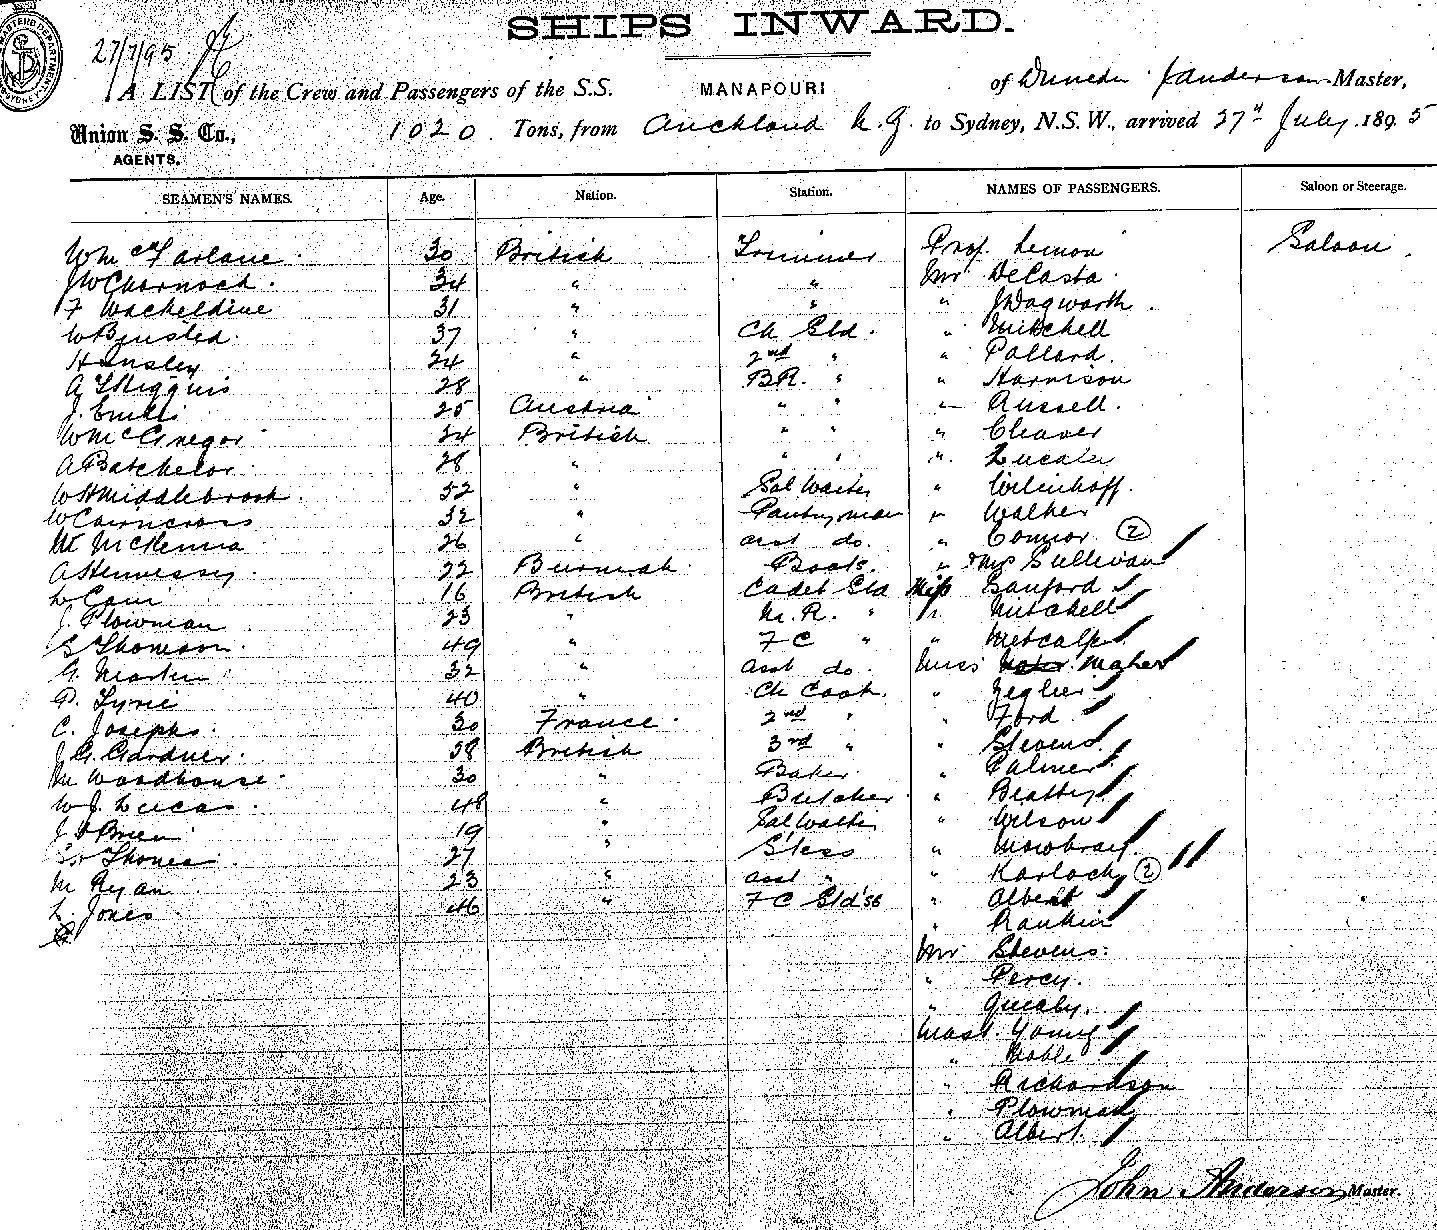 SHIPS INWARD.
27/7/95
A LIST of the Crew and Passengers of the S.S. MANAPOURI of Dunedin J Anderson Master,
Union S. S. Co., 1020 Tons, from Auckland N.Z to Sydney, N.S.W., arrived 27th July 1895
AGENTS.
SEAMEN'S NAMES. Age. Nation. Station. NAMES OF PASSENGERS. Saloon or Steerage.
Wm McFarlane 30 British Trimmer Prof. Lemon Saloon
JW Charnock 34 " " Mr DeCasta
F Wackeldine 31 " " " J Wagworth
W Binsted 37 " Ch Std. " Mitchell
H Ansley 24 " 2nd " " Pollard.
A J Higgins 28 " BR. " " Harrison
J. 25 Austria " " " Russell.
W McGregor 34 British " " " Cleaver
A Batchelor 28 " " " "
WH Middlebrook 52 " Sal Waiter "
W Cairncross 32 " Pantryman " Walker
McKenna 26 " asst do. " Connor (2)
A Hennessy 22 Boots. " & Mrs Sullivan
L Cain 16 British Cadet Std Miss Sanford
J. Plowman 23 " M.R. " " Mitchell
S Thomson 49 " F C " " Metcalfe
G. Martin 32 " asst do. Miss Maher
D. Lyrie 40 " Ch Cook. " Zeglier
C. Josephs 30 France 2nd " " Ford
J. G. Gardner 38 British 3rd " " Stevens
M Woodhouse 30 " Baker " Palmer
W. J. Lucas 48 " Butcher " Beattey
J O'Brien 19 " Sal Waiter " Wilson
27 " Stess " Mowbray
M Ryan 23 " asst " " (2)
L. Jones 46 " F C Std'ss " Albert
" Rankin
Mr Stevens
" Percy.
"
Mast. Young
" Noble
" Richardson
" Plowman
" Albert.
John Anderson Master.